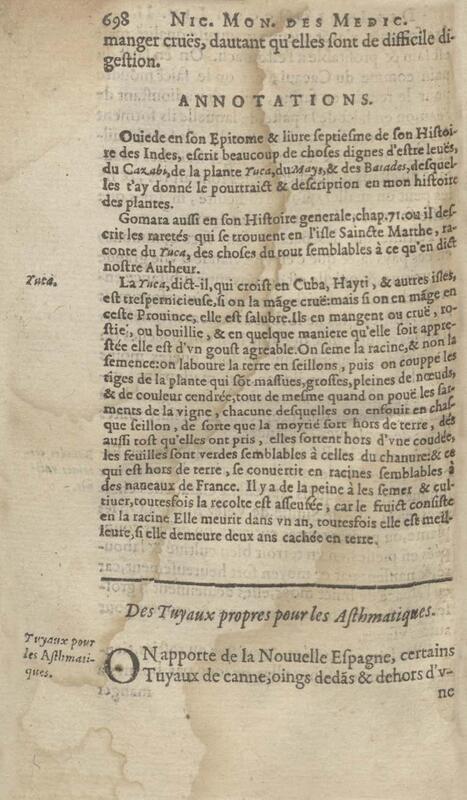 698 NIC. MON. DES MEDIC.
manger cruës, dautant qu'elles sont de difficile di-
gestion.
ANNOTATIONS.
Ouiede en son Epitome & liure septiesme de son Histoi-
re des Indes, escrit beaucoup de choses dignes d'estre leuës,
du Cazabi, de la plante Yuca, du Mays, & des Batades, desquel-
les t'ay donné le pourtraict & description en mon histoire
des plantes.
Gomara aussi en son Histoire generale, chap. 71. ou il des-
crit les raretés qui se trouuent en l'isle Saincte Marthe, ra-
conte du Yuca, des choses du tout semblables à ce qu'en dict
nostre Autheur.
Yuca.
La Yuca, dict-il, qui croist en Cuba, Hayti, & autres isles,
est trespernicieuse, si on la mãge cruë: mais si on en mãge en
ceste Prouince, elle est salubre. Ils en mangent ou cruë, ro-
stie, ou bouillie, & en quelque maniere qu'elle soit appre-
stée elle est d'vn goust agreable. On seme la racine, & non la
semence: on laboure la terre en seillons, puis on couppe les
tiges de la plante qui sõt massues, grosses, pleines de nœuds,
& de couleur cendrée, tout de mesme quand on pouë les sar-
ments de la vigne, chacune desquelles on enfouit en chas-
que seillon, de sorte que la moytié sort hors de terre, dés
aussi tost qu'elles ont pris, elles sortent hors d'vne coudée,
les feuilles sont verdes semblables à celles du chanure: & ce
qui est hors de terre, se conuertit en racines semblables à
des naueaux de France. Il y a de la peine à les semer & cul-
tiuer, toutesfois la recolte est asseurée, car le fruict consiste
en la racine Elle meurit dans vn an, toutesfois elle est meil-
leure, si elle demeure deux ans cachée en terre.
Des Tuyaux propres pour les Asthmatiques.
Tuyaux pour
les Asthmati-
ques.
ON apporte de la Nouuelle Espagne, certains
Tuyaux de canne, oings dedãs & dehors d'v-
ne